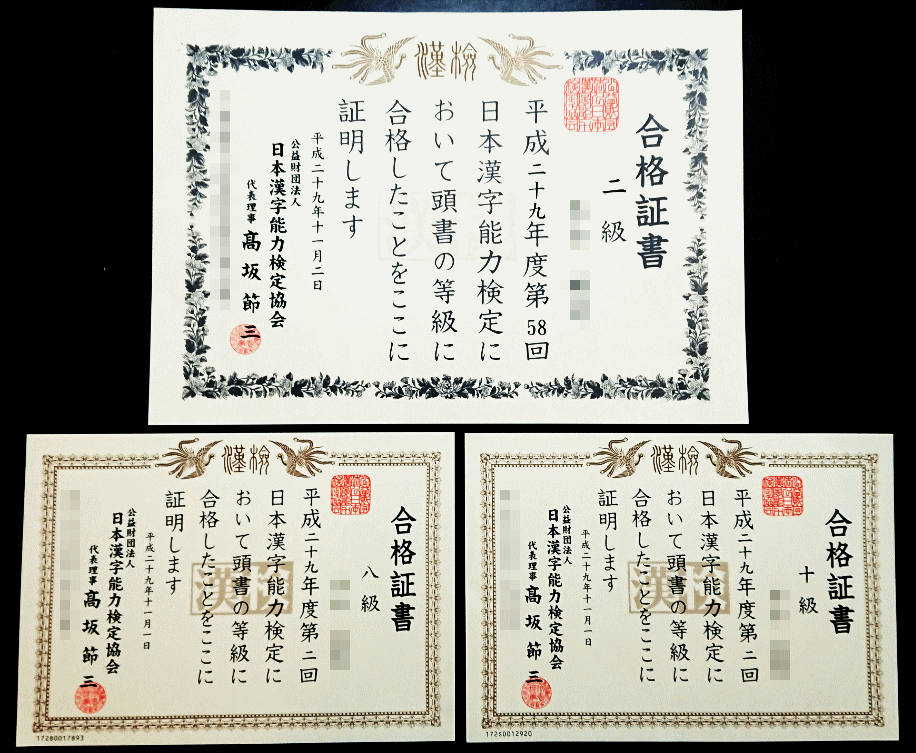 漢検
合格証書
二級
平成二十九年度第58回
日本漢字能力検定に
おいて頭書の等級に
合格したことをここに
証明します
平成二十九年十一月二日
公益財団法人
日本漢字能力検定協会
代表理事 髙坂節三
漢検
合格証書
八級
平成二十九年度第二回
日本漢字能力検定に
おいて頭書の等級に
合格したことをここに
証明します
平成二十九年十一月一日
公益財団法人
日本漢字能力検定協会
代表理事 髙坂節三
漢検
17280017893
漢検
合格証書
十級
平成二十九年度第二回
日本漢字能力検定に
おいて頭書の等級に
合格したことをここに
証明します
平成二十九年十一月一日
公益財団法人
日本漢字能力検定協会
代表理事 髙坂節三
漢検
17280012920